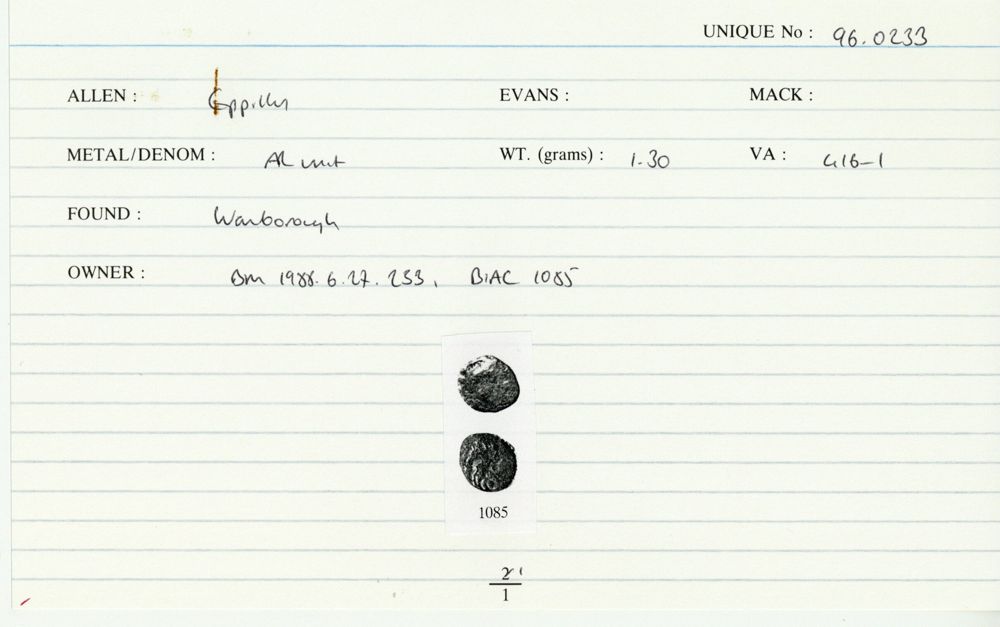 UNIQUE No : 96.0233
ALLEN : Eppillus EVANS : MACK :
METAL/DENOM : AR unit WT. (grams) : 1.30 VA : 416-1
FOUND : Warborough
OWNER : BM 1988.6.27.233, BIAC 1085
1085
1
1